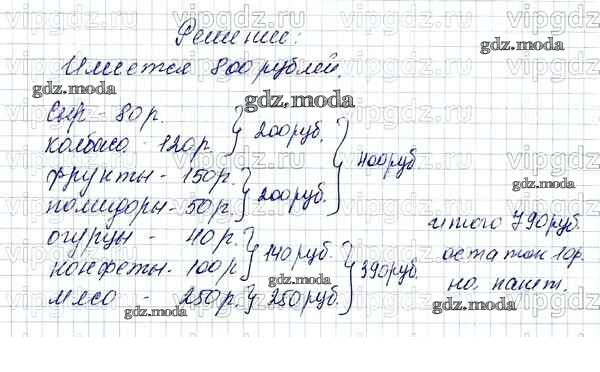 Решение:
Имеется 800 рублей.
Сыр - 80 р.
колбаса - 120 р. } 200 руб.
фрукты - 150 р.
помидоры - 50 р. } 200 руб. } 400 руб
огурцы - 40 р.
конфеты - 100 р } 140 руб.
мясо - 250 р. } 250 руб. } 390 руб.
итого 790 руб.
остаток 10 р.
на пакет.
gdz.moda
gdz.moda
gdz.moda
gdz.moda
gdz.moda
gdz.moda
gdz.moda
vipgdz